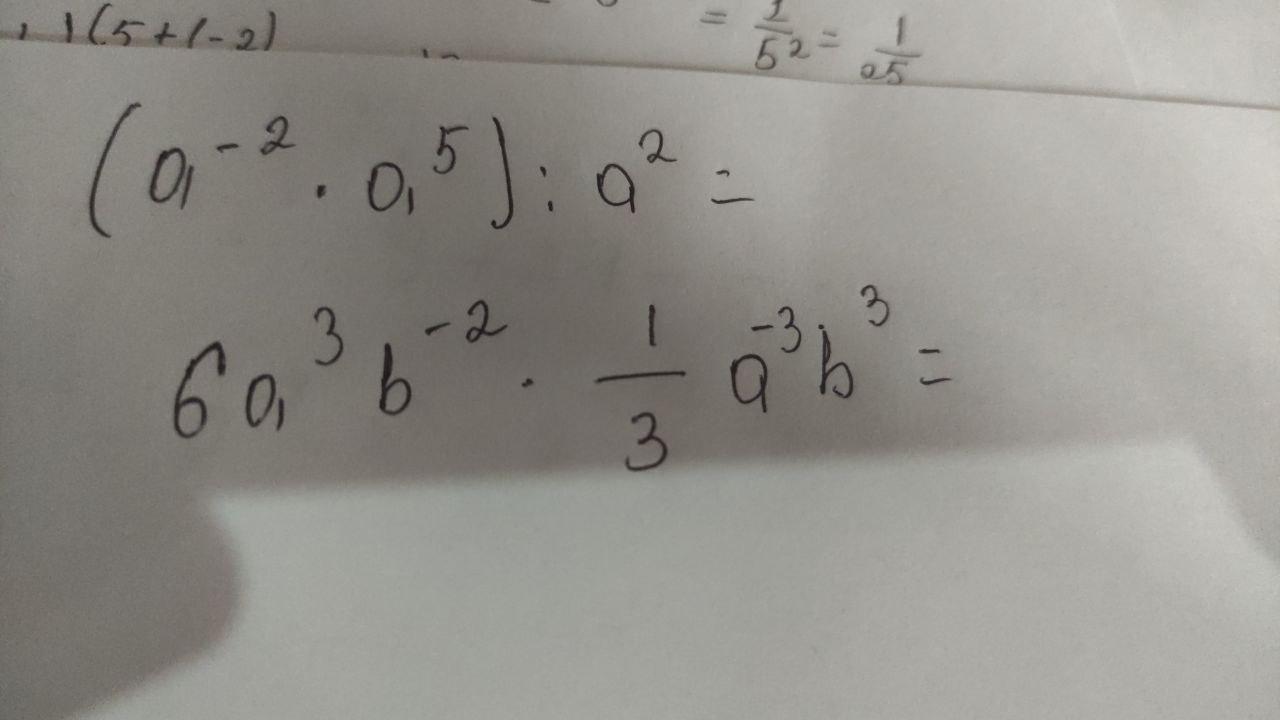 1(5+(-2)
= 1/5² = 1/25
(a⁻² · a⁵) : a² =
6a³b⁻² · 1/3 a⁻³b³ =